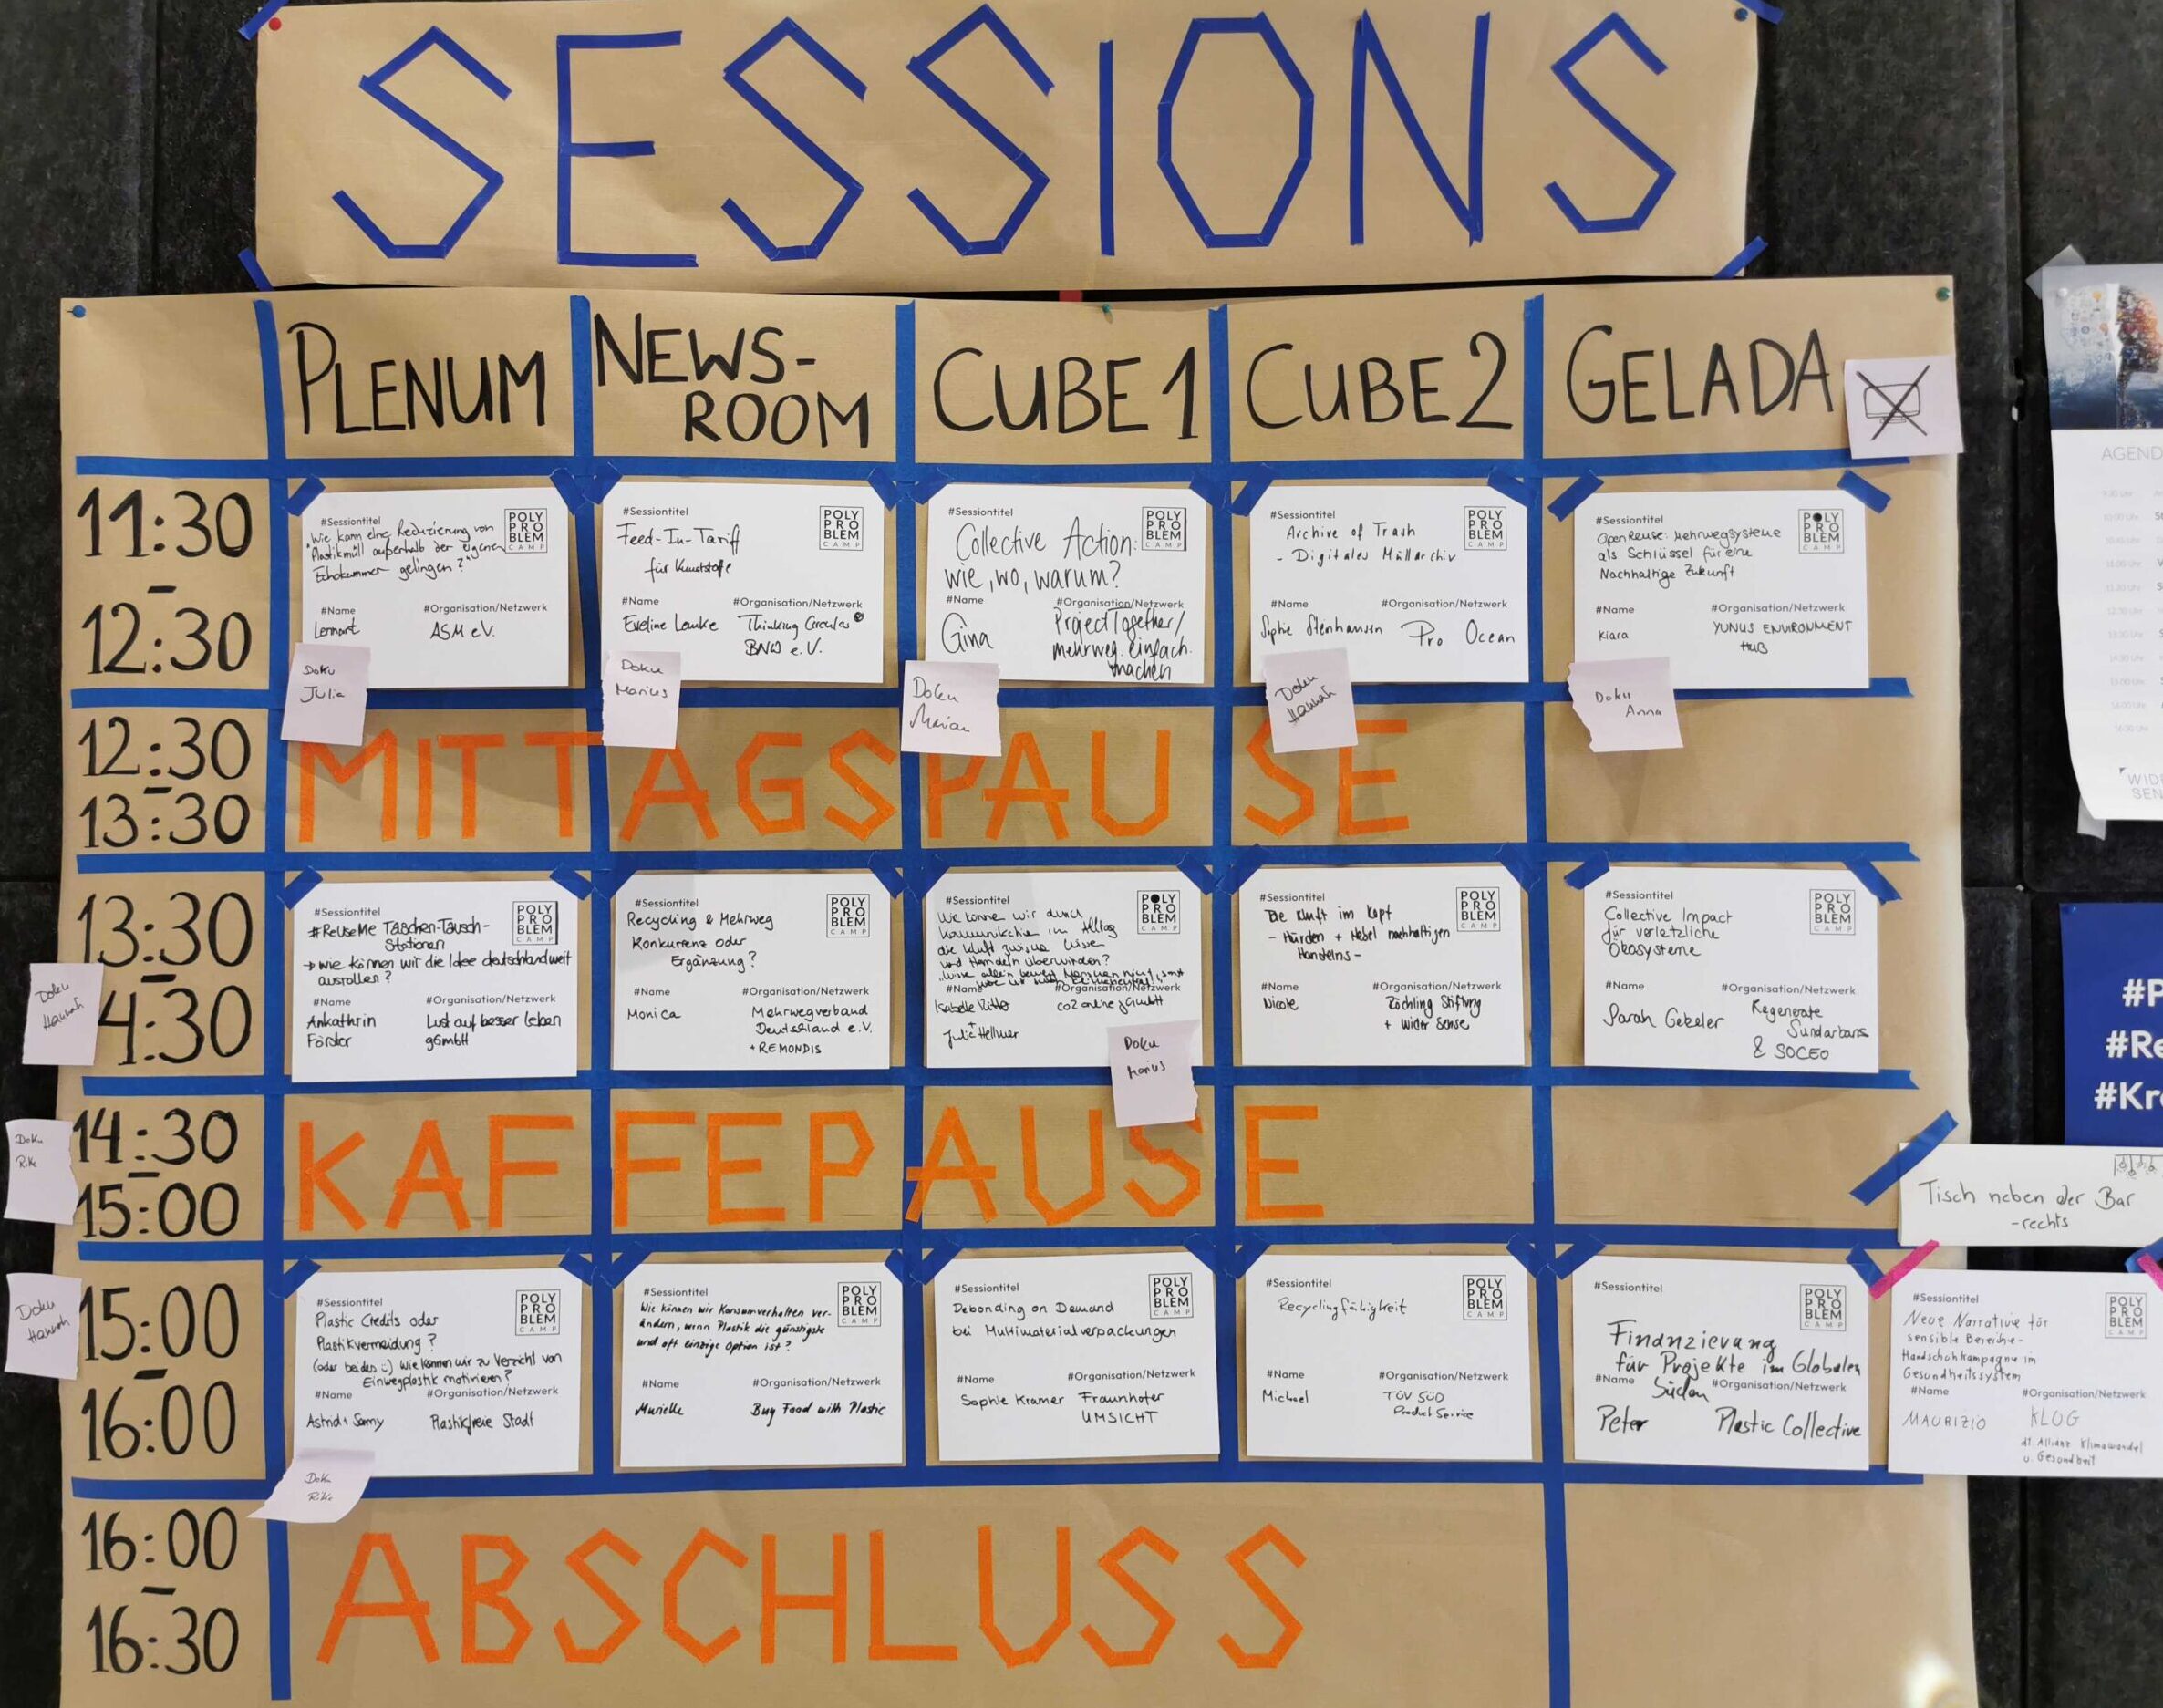 SESSIONS
PLENUM
NEWS-
ROOM
CUBE 1
CUBE 2
GELADA
11:30
-
12:30
#Sessiontitel
"Wie kann eine Reduzierung von
Plastikmüll außerhalb der eigenen
Echokammer gelingen?"
POLY
PRO
BLEM
CAMP
#Name
#Organisation/Netzwerk
Lennart
ASM e.V.
Doku
Julia
#Sessiontitel
Feed-In-Tariff
für Kunststoffe
POLY
PRO
BLEM
CAMP
#Name
#Organisation/Netzwerk
Eveline Lemke
Thinking Circular
BNW e.V.
Doku
Marius
#Sessiontitel
Collective Action:
wie, wo, warum?
POLY
PRO
BLEM
CAMP
#Name
#Organisation/Netzwerk
Gina
ProjectTogether/
mehrweg. einfach.
machen
Doku
#Sessiontitel
Archive of Trash
- Digitales Müllarchiv
POLY
PRO
BLEM
CAMP
#Name
#Organisation/Netzwerk
Sophie
Pro Ocean
Doku
Hannah
#Sessiontitel
OpenReuse: Mehrwegsysteme
als Schlüssel für eine
Nachhaltige Zukunft
POLY
PRO
BLEM
CAMP
#Name
#Organisation/Netzwerk
Kiara
YUNUS ENVIRONMENT
HUB
Doku
Anna
12:30
-
13:30
MITTAGSPAUSE
13:30
-
4:30
Doku
Hannah
#Sessiontitel
#ReUseMe Taschen-Tausch-
Stationen
→ wie können wir die Idee deutschlandweit
ausrollen?
POLY
PRO
BLEM
CAMP
#Name
#Organisation/Netzwerk
Ankathrin
Förster
Lust auf besser leben
gGmbH
#Sessiontitel
Recycling & Mehrweg
Konkurrenz oder
Ergänzung?
POLY
PRO
BLEM
CAMP
#Name
#Organisation/Netzwerk
Monica
Mehrwegverband
Deutschland e.V.
+ REMONDIS
#Sessiontitel
Wie können wir durch
Kommunikation im Alltag
die Kluft zwischen Wissen
und Handeln überwinden?
POLY
PRO
BLEM
CAMP
#Name
#Organisation/Netzwerk
Isabelle
+
Julia Hellmer
co2 online gGmbH
Doku
Marius
#Sessiontitel
Die Kluft im Kopf
- Hürden + Hebel nachhaltigen
Handelns -
POLY
PRO
BLEM
CAMP
#Name
#Organisation/Netzwerk
Nicole
Röchling Stiftung
+ Wider Sense
#Sessiontitel
Collective Impact
für verletzliche
Ökosysteme
POLY
PRO
BLEM
CAMP
#Name
#Organisation/Netzwerk
Sarah
Regenerate
Sundarbans
& SOCEO
14:30
-
15:00
Doku
Rike
KAFFEPAUSE
Tisch neben der Bar
-rechts
15:00
-
16:00
Doku
Hannah
#Sessiontitel
Plastic Credits oder
Plastikvermeidung?
(oder beides :) Wie können wir zu Verzicht von
Einwegplastik motivieren?
POLY
PRO
BLEM
CAMP
#Name
#Organisation/Netzwerk
Astrid + Samy
Plastikfreie Stadt
Doku
Rike
#Sessiontitel
Wie können wir Konsumverhalten ver-
ändern, wenn Plastik die günstigste
und oft einzige Option ist?
POLY
PRO
BLEM
CAMP
#Name
#Organisation/Netzwerk
Murielle
Buy Food with Plastic
#Sessiontitel
Debonding on Demand
bei Multimaterialverpackungen
POLY
PRO
BLEM
CAMP
#Name
#Organisation/Netzwerk
Sophie Kramer
Fraunhofer
UMSICHT
#Sessiontitel
Recyclingfähigkeit
POLY
PRO
BLEM
CAMP
#Name
#Organisation/Netzwerk
Michael
TÜV SÜD
Product Service
#Sessiontitel
Finanzierung
für Projekte im Globalen
Süden
POLY
PRO
BLEM
CAMP
#Name
#Organisation/Netzwerk
Peter
Plastic Collective
#Sessiontitel
Neue Narrative für
sensible Bereiche-
Handschuhkampagne im
Gesundheitssystem
POLY
PRO
BLEM
CAMP
#Name
#Organisation/Netzwerk
MAURIZIO
KLUG
dt. Allianz Klimawandel
u. Gesundheit
16:00
-
16:30
ABSCHLUSS
AGEND
WID
SEN
#P
#Re
#Kr